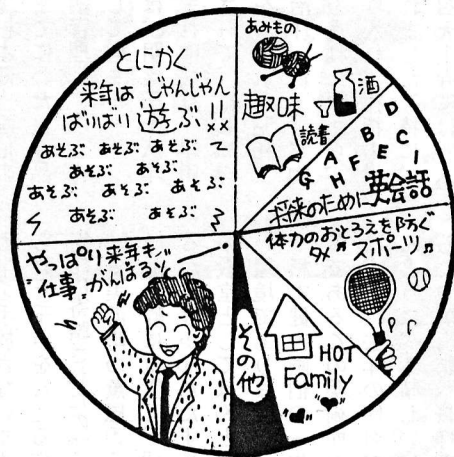 とにかく
来年は じゃんじゃん
ばりばり 遊ぶ!!
あそぶ あそぶ あそぶ
あそぶ あそぶ
あそぶ あそぶ あそぶ
あそぶ あそぶ
あみもの
趣味
酒
読書
A B C D E F G H I
将来のために英会話
体力のおとろえを防ぐ
タメ スポーツ
HOT
Family
その他
やっぱり来年も
"仕事"がんばるゾ